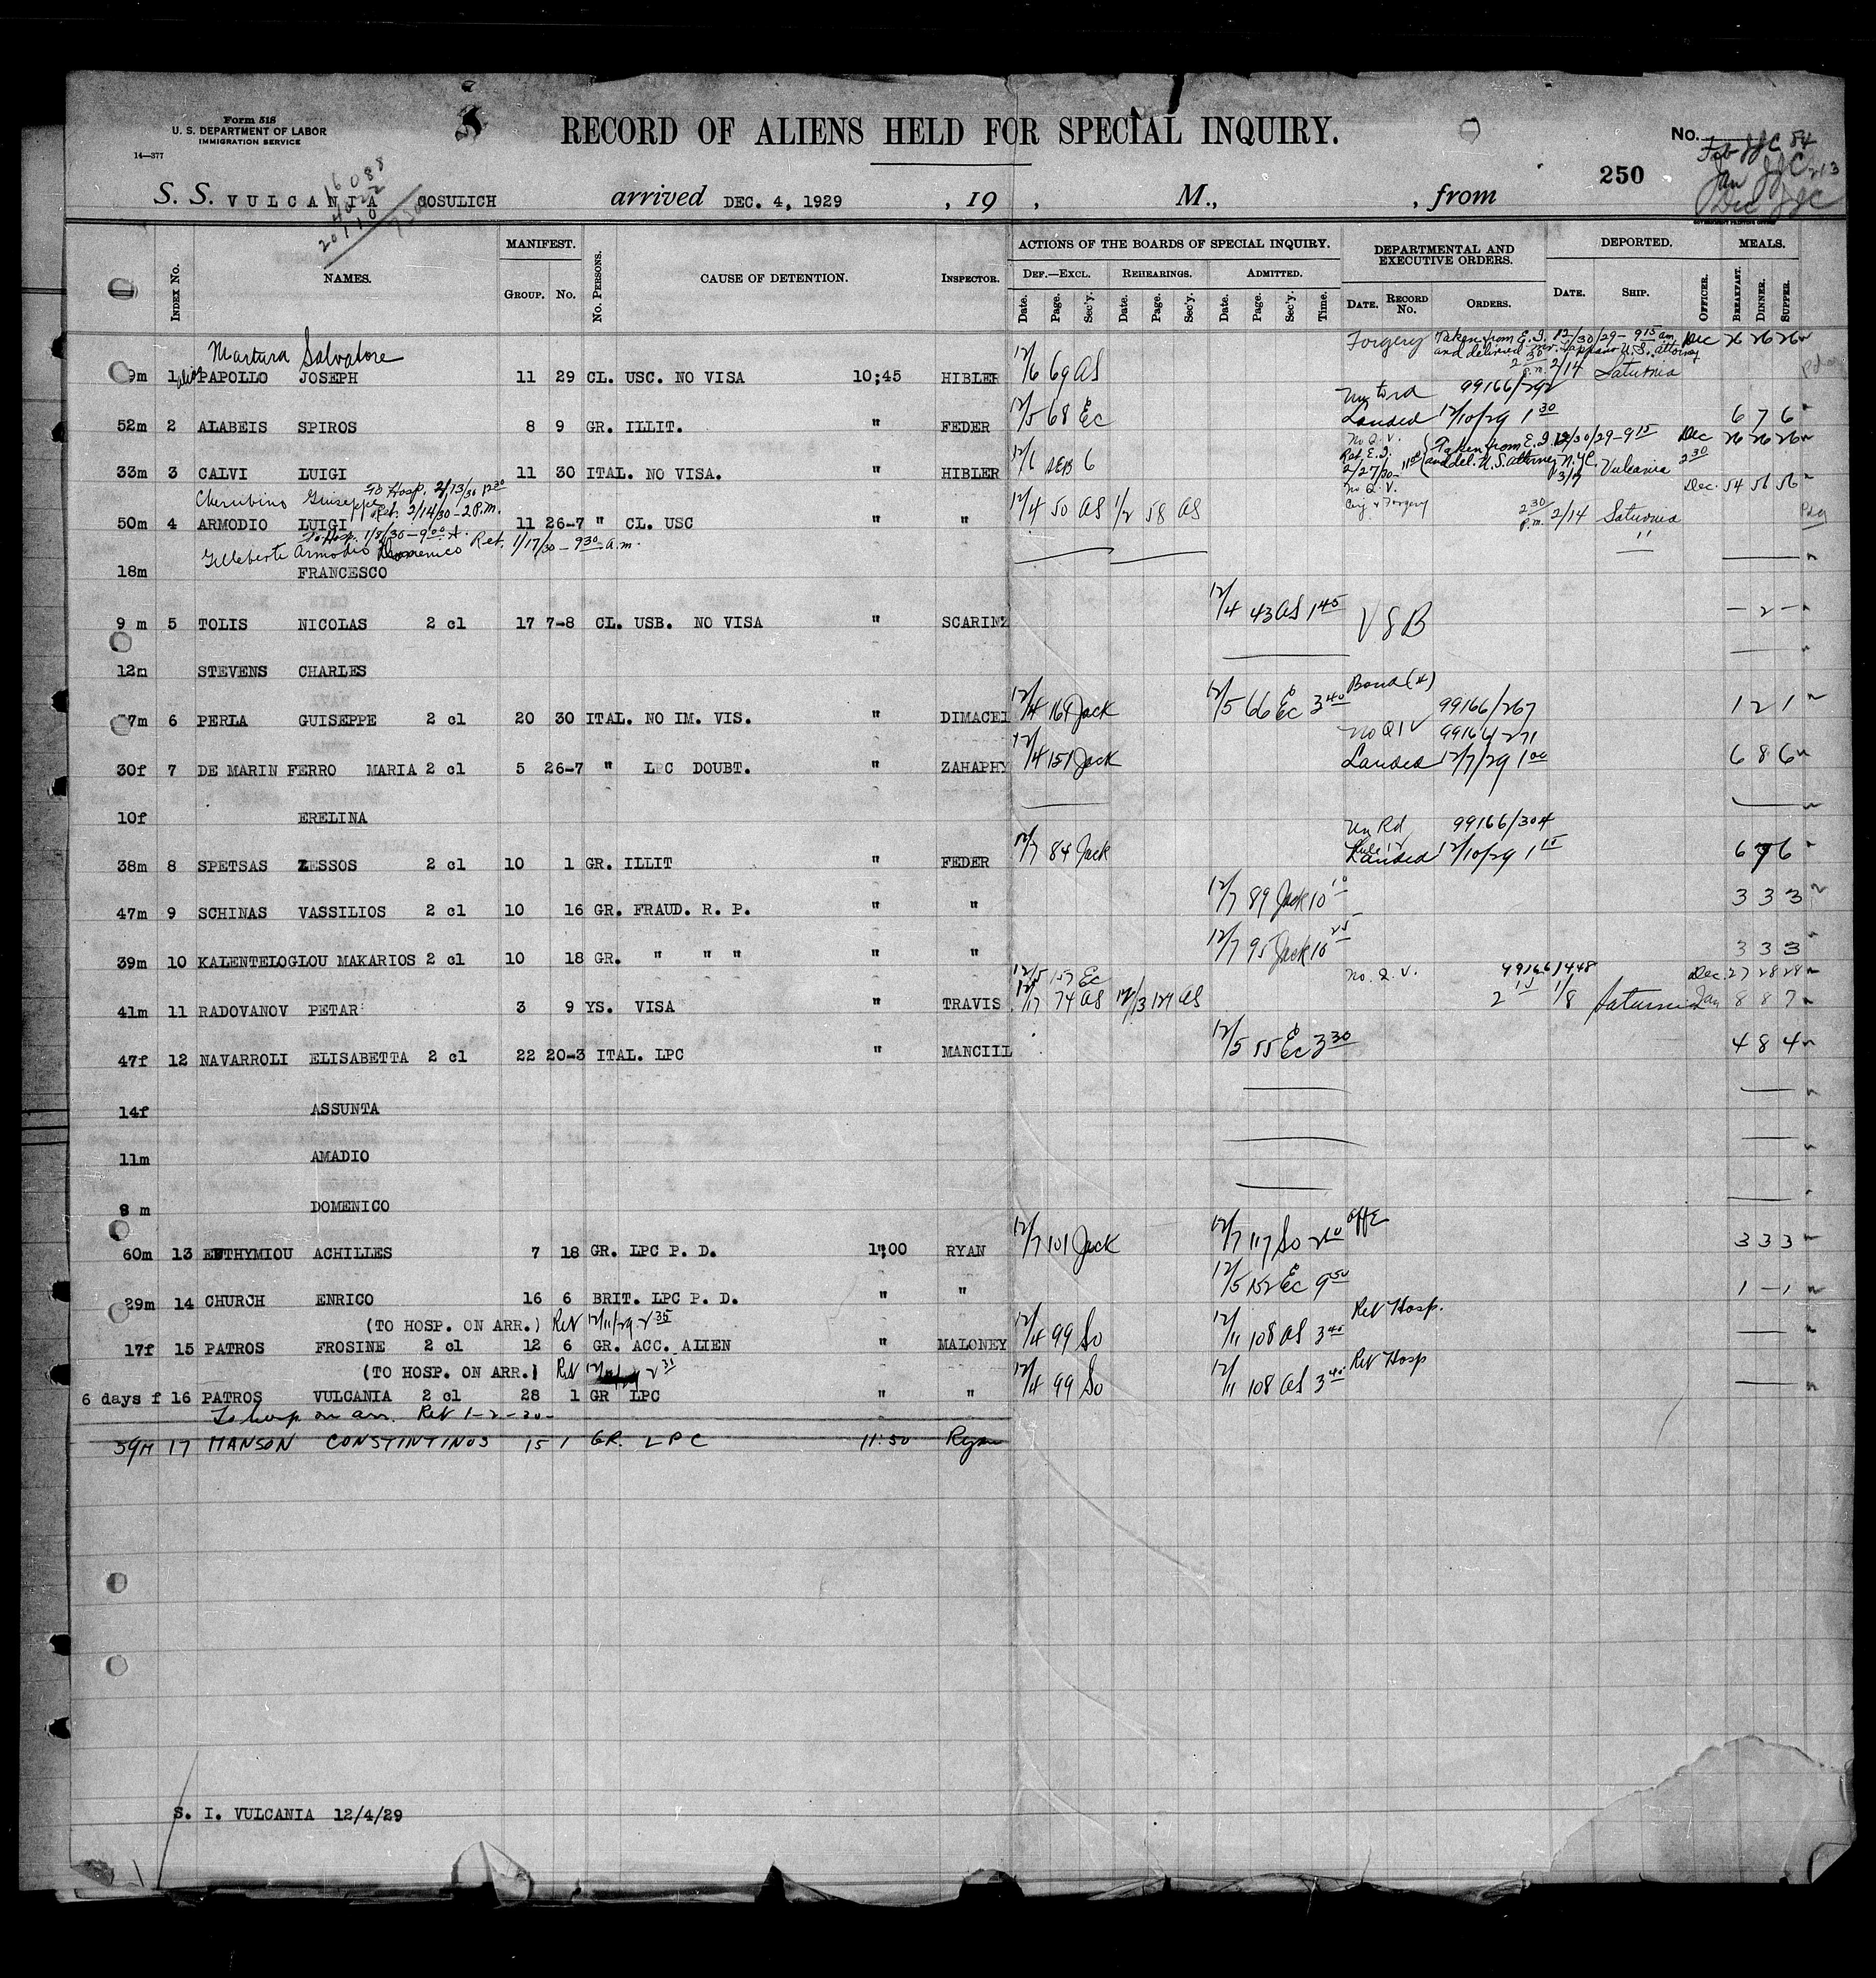 Form 518
U. S. DEPARTMENT OF LABOR
IMMIGRATION SERVICE
14—377
RECORD OF ALIENS HELD FOR SPECIAL INQUIRY.
No.
Feb JJC 84
Jan JJC 213
Dec JJC
250
S. S. VULCANIA COSULICH arrived DEC. 4, 1929 , 19 , M., , from
GOVERNMENT PRINTING OFFICE
INDEX No. NAMES. MANIFEST. GROUP. No. No. PERSONS. CAUSE OF DETENTION. INSPECTOR. ACTIONS OF THE BOARDS OF SPECIAL INQUIRY. DEF.—EXCL. REHEARINGS. ADMITTED. DEPARTMENTAL AND EXECUTIVE ORDERS. DEPORTED. MEALS.
Date. Page. Sec'y. Date. Page. Sec'y. Date. Page. Sec'y. Time. DATE. RECORD No. ORDERS. DATE. SHIP. OFFICER. BREAKFAST. DINNER. SUPPER.
Martura Salvatore Forgery Taken from E. I. 12/30/29 - 9 15 am Dec 26 26 26
and delivered Mr. U.S. attorney
9m 1 alias PAPOLLO JOSEPH 11 29 CL. USC. NO VISA 10;45 HIBLER 12/6 69 AS 2 30 p.m. 2/14 Saturnia
99166/292
52m 2 ALABEIS SPIROS 8 9 GR. ILLIT. " FEDER 12/5 68 Ec Landed 12/10/29 1 30 6 7 6
No Q. V. Taken from E. I. 12/30/29 - 9 15 Dec 26 26 26
Ret. E. I. and del. U. S. attorney N.Y.C.
33m 3 CALVI LUIGI 11 30 ITAL. NO VISA. " HIBLER 12/6 6 2/27/30 3/7 Vulcania 2 30
Cherubino Guiseppe To Hosp. 2/13/30 12 30 Ret. 2/14/30 - 2 P.M. No Q. V. Dec. 54 56 56
50m 4 ARMODIO LUIGI 11 26-7 " CL. USC " " 12/4 50 AS 1/2 58 AS Forgery 2 30 p.m. 2/14 Saturnia
To Hosp. 1/5/30 - 9 00 A.
Gilleberti Armodio Domenico Ret. 1/17/30 - 9 30 a.m. "
18m FRANCESCO
9 m 5 TOLIS NICOLAS 2 cl 17 7-8 CL. USB. NO VISA " SCARINZ 12/4 43 AS 1 45 VSB — 2 —
12m STEVENS CHARLES
Bond (4)
37m 6 PERLA GUISEPPE 2 cl 20 30 ITAL. NO IM. VIS. " DIMACEI 12/4 164 Jack 12/5 66 Ec 3 40 99166/267 1 2 1
No QIV 99166/271
30f 7 DE MARIN FERRO MARIA 2 cl 5 26-7 " LPC DOUBT. " ZAHAPHY 12/4 151 Jack Landed 12/7/29 1 00 6 8 6
10f ERELINA
99166/304
38m 8 SPETSAS ZESSOS 2 cl 10 1 GR. ILLIT " FEDER 12/7 84 Jack Landed 12/10/29 1 15 6 7 6
47m 9 SCHINAS VASSILIOS 2 cl 10 16 GR. FRAUD. R. P. " " 12/7 89 Jack 10 10 3 3 3
39m 10 KALENTELOGLOU MAKARIOS 2 cl 10 18 GR. " " " " " 12/7 95 Jack 10 25 3 3 3
12/5 157 Ec No. Q. V. 99166/448 Dec. 27 28 28
41m 11 RADOVANOV PETAR 3 9 YS. VISA " TRAVIS 12/17 74 AS 12/13 127 AS 2 15 1/8 Saturnia Jan 8 8 7
47f 12 NAVARROLI ELISABETTA 2 cl 22 20-3 ITAL. LPC " MANCIIL 12/5 55 Ec 3 30 4 8 4
14f ASSUNTA
11m AMADIO
8 m DOMENICO
60m 13 EUTHYMIOU ACHILLES 7 18 GR. LPC P. D. 1";00 RYAN 12/7 101 Jack 12/7 117 So 2 10 3 3 3
29m 14 CHURCH ENRICO 16 6 BRIT. LPC P. D. " " 12/5 152 Ec 9 50 1 — 1
(TO HOSP. ON ARR.) Ret 12/11/29 2 35 Ret Hosp.
17f 15 PATROS FROSINE 2 cl 12 6 GR. ACC. ALIEN " MALONEY 12/4 99 So 12/11 108 AS 3 40
(TO HOSP. ON ARR.) Ret 2 31 Ret Hosp
6 days f 16 PATROS VULCANIA 2 cl 28 1 GR LPC " " 12/4 99 So 12/11 108 AS 3 40
To hosp on arr. Ret 1-2-30-
39M 17 MANSON CONSTINTINOS 15 1 GR. LPC 11:50 Ryan
S. I. VULCANIA 12/4/29